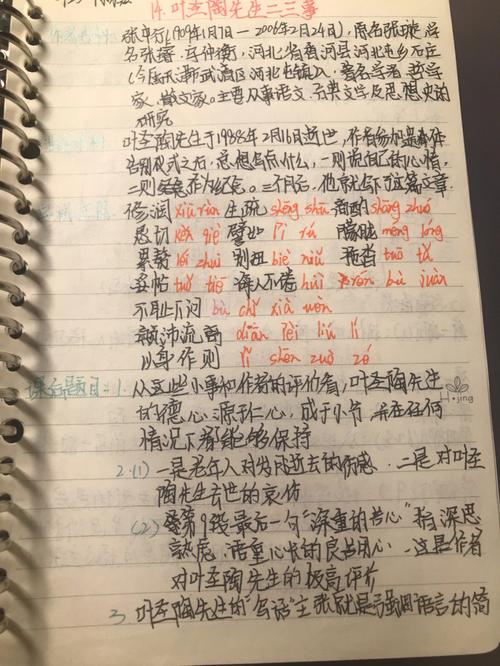 14.叶圣陶先生二三事
张中行(1909年1月7日—2006年2月24日),原名张璇,学
名张璿,字仲衡,河北省香河县河北屯乡石庄
(今属天津市武清区河北屯镇)人,著名学者、哲学
家、散文家。主要从事语文、古典文学及思想史的
研究
叶圣陶先生于1988年2月16日逝世,作者参加遗体
告别仪式之后,总想写点什么,一则说自己的心情,
二则 作为纪念。三个月后,他就写下了这篇文章.
修润 xiū rùn 生疏 shēng shū 商酌 shāng zhuó
恳切 kěn qiè 譬如 pì rú 朦胧 méng lóng
累赘 léi zhui 别扭 biè niǔ 拖沓 tuō tà
妥帖 tuǒ tiē 诲人不倦 huì rén bù juàn
不耻下问 bù chǐ xià wèn
颠沛流离 diān pèi liú lí
以身作则 yǐ shēn zuò zé
课后题目:1. 从这些小事和作者的评价看,叶圣陶先生
的德心源仁心,成于小节,并在任何
情况下都能够保持
H·jing
2.(1) 一是老年人对岁月逝去的伤感.二是对叶圣
陶先生去世的哀伤
(2) 第9段最后一句"深重的苦心"指深思
熟虑、语重心长的良苦用心.这是作者
对叶圣陶先生的极高评价
3.叶圣陶先生的"写话"主张就是强调语言的简